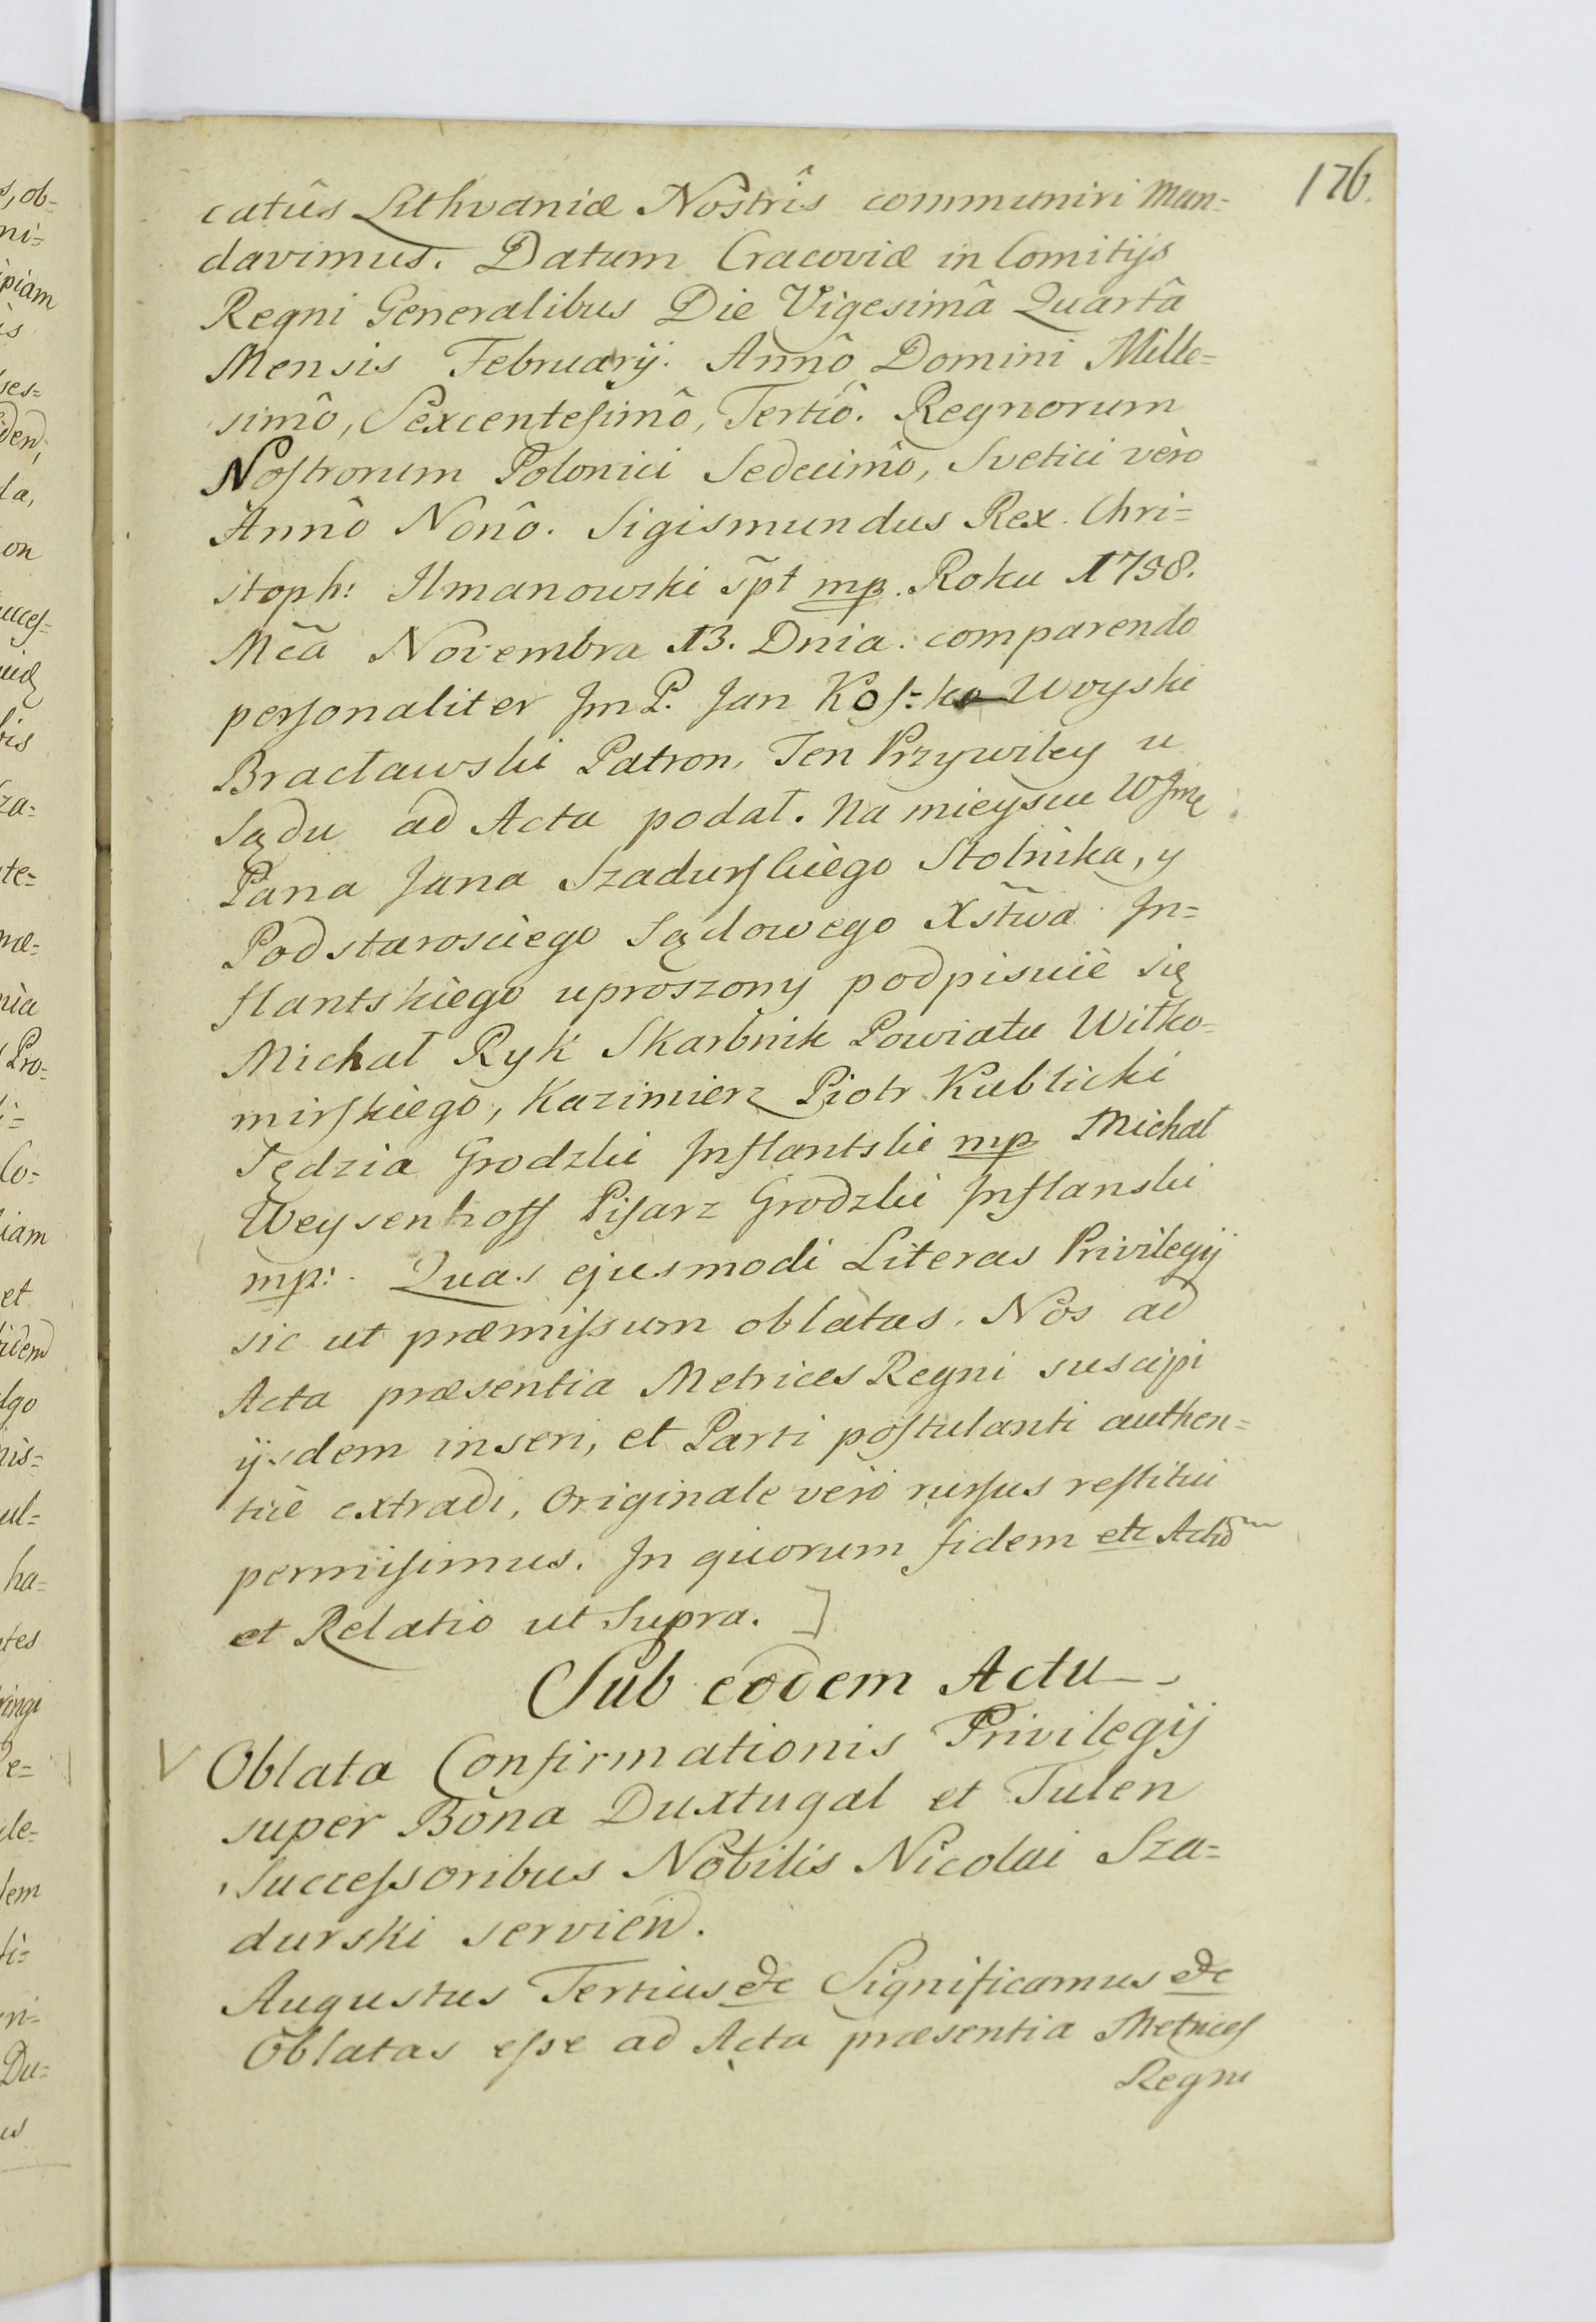 176.
catûs Lithvaniæ Nostrîs communiri Man=
davimus. Datum Cracoviæ in Comitijs
Regni Generalibus Die Vigesimâ Quartâ
Mensis Februarij. Annô Domini Mille=
simô, Sexcentesimô, Tertiô. Regnorum
Nostrorum Polonici Sedecimô, Svetici vèro
Annô Nonô. Sigismundus Rex. Chri=
stoph: Ilmanowski Spt mp. Roku 1758.
Mca Novembra 13. Dnia. comparendo
personaliter Jm P. Jan Kos=ko Woyski
Bracławski Patron, Ten Przywiley u
Sądu ad Acta podał. Na mieyscu WJmę
Pana Jana Szadurskiego Stolnika, y
Podstarosciego Sądowego Xstwa In=
flantskiego uproszony podpisuie się
Michał Ryk Skarbnik Powiatu Wiłko=
mirskiego, Kazimierz Piotr Kublicki
Sędzia Grodzki Inflantski mp Michał
Weysenhoff Pisarz Grodzki Inflanski
mp: Quas ejusmodi Literas Privilegij
sic ut præmissum oblatas. Nos ad
Acta præsentia Metrices Regni suscipi
ijsdem inseri, et Parti postulanti authen=
ticè extradi, Originale verò rursus restitui
permisimus. In quorum fidem etc Actū
et Relatio ut Supra. ]
Sub eodem Actu
V Oblata Confirmationis Privilegij
super Bona Duxtugal et Tulen
Successoribus Nobilis Nicolai Sza=
durski servien.
Augustus Tertius &c Significamus &c
Oblatas esse ad Acta præsentia Metrices
Regni